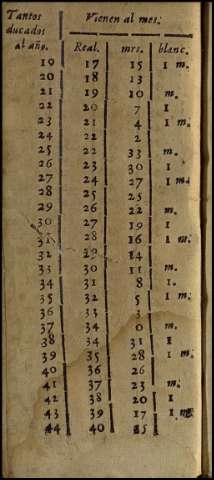 Tantos ducados al año. Vienen al mes.
Real. mrs. blanc.
19 17 15 1 m.
20 18 13
21 19 10 m.
22 20 7 1
23 21 4 1 m.
24 22 2
25 22 33 m.
26 23 30 1
27 24 27 1 m
28 25 25
29 26 22 m.
30 27 19 1
31 28 16 1 m.
32 29 14
33 30 11 m.
34 31 8 1.
35 32 5 1 m.
36 33 3
37 34 0 m.
38 34 31 1
39 35 28 1 m.
40 36 26
41 37 23 m.
42 38 20 1
43 39 17 1 m
44 40 15